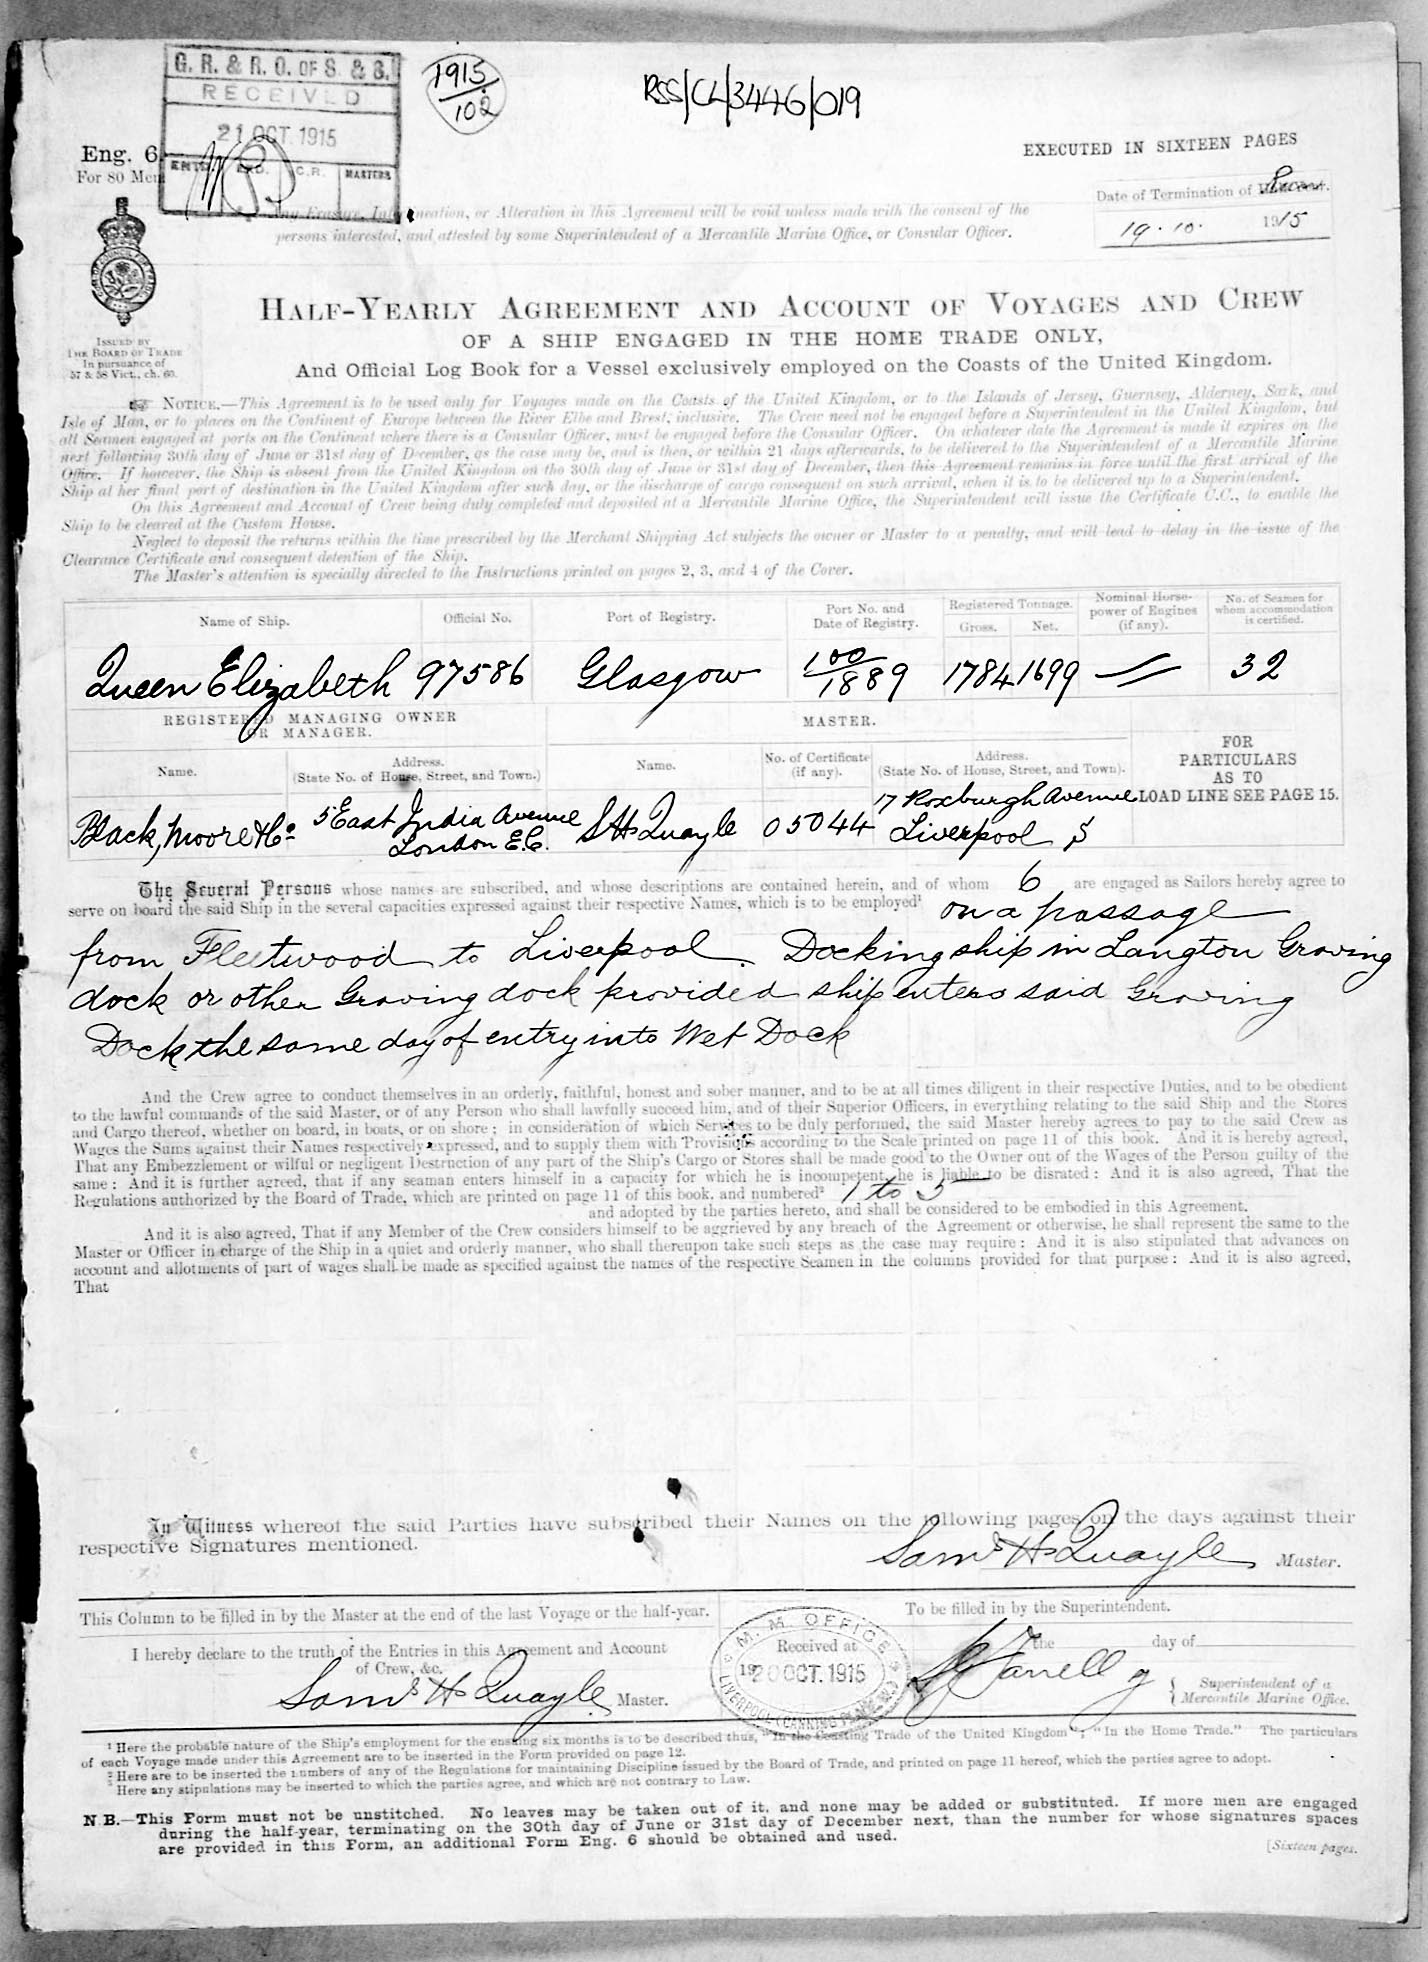 G. R. & R. O. OF S. & S.
RECEIVED
21 OCT 1915
ENTD. C.R. MASTERS
1915/102
RSS/CL/3446/019
Eng. 6
For 80 Men
EXECUTED IN SIXTEEN PAGES
Date of Termination of
19.10. 1915
Any Erasure, Interlineation, or Alteration in this Agreement will be void unless made with the consent of the
persons interested, and attested by some Superintendent of a Mercantile Marine Office, or Consular Officer.
ISSUED BY
THE BOARD OF TRADE
In pursuance of
57 & 58 Vict., ch. 60.
HALF-YEARLY AGREEMENT AND ACCOUNT OF VOYAGES AND CREW
OF A SHIP ENGAGED IN THE HOME TRADE ONLY,
And Official Log Book for a Vessel exclusively employed on the Coasts of the United Kingdom.
NOTICE.—This Agreement is to be used only for Voyages made on the Coasts of the United Kingdom, or to the Islands of Jersey, Guernsey, Alderney, Sark, and
Isle of Man, or to places on the Continent of Europe between the River Elbe and Brest, inclusive. The Crew need not be engaged before a Superintendent in the United Kingdom, but
all Seamen engaged at ports on the Continent where there is a Consular Officer, must be engaged before the Consular Officer. On whatever date the Agreement is made it expires on the
next following 30th day of June or 31st day of December, as the case may be, and is then, or within 21 days afterwards, to be delivered to the Superintendent of a Mercantile Marine
Office. If however, the Ship is absent from the United Kingdom on the 30th day of June or 31st day of December, then this Agreement remains in force until the first arrival of the
Ship at her final port of destination in the United Kingdom after such day, or the discharge of cargo consequent on such arrival, when it is to be delivered up to a Superintendent.
On this Agreement and Account of Crew being duly completed and deposited at a Mercantile Marine Office, the Superintendent will issue the Certificate C.C., to enable the
Ship to be cleared at the Custom House.
Neglect to deposit the returns within the time prescribed by the Merchant Shipping Act subjects the owner or Master to a penalty, and will lead to delay in the issue of the
Clearance Certificate and consequent detention of the Ship.
The Master's attention is specially directed to the Instructions printed on pages 2, 3, and 4 of the Cover.
Name of Ship. Official No. Port of Registry. Port No. and Date of Registry. Registered Tonnage. Gross. Net. Nominal Horse-power of Engines (if any). No. of Seamen for whom accommodation is certified.
Queen Elizabeth 97586 Glasgow 100/1889 1784 1699 — 32
REGISTERED MANAGING OWNER OR MANAGER. MASTER.
Name. Address. (State No. of House, Street, and Town.) Name. No. of Certificate (if any). Address. (State No. of House, Street, and Town).
FOR
PARTICULARS
AS TO
LOAD LINE SEE PAGE 15.
Black, Moore & Co 5 East India Avenue London E.C. S H Quayle 05044 17 Roxburgh Avenue Liverpool S
The Several Persons whose names are subscribed, and whose descriptions are contained herein, and of whom 6 are engaged as Sailors hereby agree to
serve on board the said Ship in the several capacities expressed against their respective Names, which is to be employed¹ on a passage
from Fleetwood to Liverpool. Docking ship in Langton Graving
dock or other Graving dock provided ship enters said Graving
Dock the same day of entry into Wet Dock
And the Crew agree to conduct themselves in an orderly, faithful, honest and sober manner, and to be at all times diligent in their respective Duties, and to be obedient
to the lawful commands of the said Master, or of any Person who shall lawfully succeed him, and of their Superior Officers, in everything relating to the said Ship and the Stores
and Cargo thereof, whether on board, in boats, or on shore; in consideration of which Services to be duly performed, the said Master hereby agrees to pay to the said Crew as
Wages the Sums against their Names respectively expressed, and to supply them with Provisions according to the Scale printed on page 11 of this book. And it is hereby agreed,
That any Embezzlement or wilful or negligent Destruction of any part of the Ship's Cargo or Stores shall be made good to the Owner out of the Wages of the Person guilty of the
same: And it is further agreed, that if any seaman enters himself in a capacity for which he is incompetent he is liable to be disrated: And it is also agreed, That the
Regulations authorized by the Board of Trade, which are printed on page 11 of this book, and numbered² 1 to 5
and adopted by the parties hereto, and shall be considered to be embodied in this Agreement.
And it is also agreed, That if any Member of the Crew considers himself to be aggrieved by any breach of the Agreement or otherwise, he shall represent the same to the
Master or Officer in charge of the Ship in a quiet and orderly manner, who shall thereupon take such steps as the case may require: And it is also stipulated that advances on
account and allotments of part of wages shall be made as specified against the names of the respective Seamen in the columns provided for that purpose: And it is also agreed,
That
In Witness whereof the said Parties have subscribed their Names on the following pages on the days against their
respective Signatures mentioned.
Saml H Quayle Master.
This Column to be filled in by the Master at the end of the last Voyage or the half-year.
To be filled in by the Superintendent.
I hereby declare to the truth of the Entries in this Agreement and Account
of Crew, &c.
Saml H Quayle Master.
M. M. OFFICE
Received at
20 OCT. 1915
LIVERPOOL (CANNING PLACE
the day of
Superintendent of a
Mercantile Marine Office.
¹ Here the probable nature of the Ship's employment for the ensuing six months is to be described thus, "In the Coasting Trade of the United Kingdom"; "In the Home Trade." The particulars
of each Voyage made under this Agreement are to be inserted in the Form provided on page 12.
² Here are to be inserted the numbers of any of the Regulations for maintaining Discipline issued by the Board of Trade, and printed on page 11 hereof, which the parties agree to adopt.
³ Here any stipulations may be inserted to which the parties agree, and which are not contrary to Law.
N.B.—This Form must not be unstitched. No leaves may be taken out of it, and none may be added or substituted. If more men are engaged
during the half-year, terminating on the 30th day of June or 31st day of December next, than the number for whose signatures spaces
are provided in this Form, an additional Form Eng. 6 should be obtained and used.
[Sixteen pages.